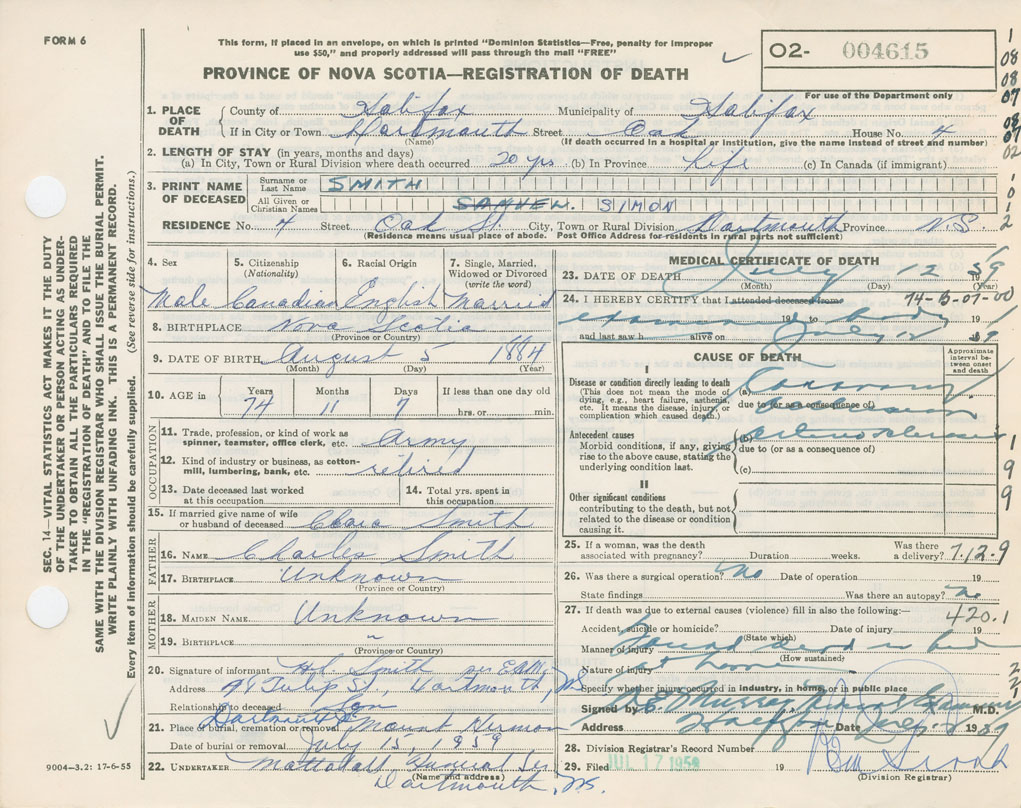 FORM 6
This form, if placed in an envelope, on which is printed "Dominion Statistics—Free, penalty for improper
use $50," and properly addressed will pass through the mail "FREE"
PROVINCE OF NOVA SCOTIA—REGISTRATION OF DEATH
O2- 004615
For use of the Department only
1. PLACE OF DEATH County of Halifax Municipality of Halifax
If in City or Town Dartmouth Street Oak House No. 4
(Name) (If death occurred in a hospital or institution, give the name instead of street and number)
2. LENGTH OF STAY (in years, months and days)
(a) In City, Town or Rural Division where death occurred 20 yrs (b) In Province Life (c) In Canada (if immigrant)
3. PRINT NAME OF DECEASED Surname or Last Name SMITH
All Given or Christian Names SAMUEL SIMON
RESIDENCE No. 4 Street Oak St. City, Town or Rural Division Dartmouth Province N.S.
(Residence means usual place of abode. Post Office Address for residents in rural parts not sufficient)
4. Sex 5. Citizenship (Nationality) 6. Racial Origin 7. Single, Married, Widowed or Divorced (write the word)
Male Canadian English Married
8. BIRTHPLACE Nova Scotia
(Province or Country)
9. DATE OF BIRTH August 5 1884
(Month) (Day) (Year)
10. AGE in Years Months Days If less than one day old
74 11 7 hrs. or min.
OCCUPATION
11. Trade, profession, or kind of work as spinner, teamster, office clerk, etc. Army
12. Kind of industry or business, as cotton-mill, lumbering, bank, etc. retired
13. Date deceased last worked at this occupation
14. Total yrs. spent in this occupation
15. If married give name of wife or husband of deceased Smith
FATHER
16. NAME Charles Smith
17. BIRTHPLACE Unknown
(Province or Country)
MOTHER
18. MAIDEN NAME Unknown
19. BIRTHPLACE "
(Province or Country)
20. Signature of informant Smith
Address 98 Tulip St., Dartmouth, NS
Relationship to deceased Son
21. Place of burial, cremation or removal Dartmouth Mount Hermon
Date of burial or removal July 15, 1959
22. UNDERTAKER Mattatall Funeral Ser
(Name and address)
Dartmouth, NS.
MEDICAL CERTIFICATE OF DEATH
23. DATE OF DEATH July 12 59
(Month) (Day) (Year)
24. I HEREBY CERTIFY that I attended deceased from 74-B-07-00
19 to body 19
and last saw h alive on July 12 59
CAUSE OF DEATH
Approximate interval between onset and death
I
Disease or condition directly leading to death
(This does not mean the mode of dying, e.g., heart failure, asthenia, etc. It means the disease, injury, or complication which caused death.)
(a) Coronary
due to (or as a consequence of)
Antecedent causes
Morbid conditions, if any, giving rise to the above cause, stating the underlying condition last.
(b)
due to (or as a consequence of)
(c)
II
Other significant conditions contributing to the death, but not related to the disease or condition causing it.
25. If a woman, was the death associated with pregnancy? Duration weeks. Was there a delivery? 7.12.9
26. Was there a surgical operation? No Date of operation 19
State findings Was there an autopsy? No
27. If death was due to external causes (violence) fill in also the following:— 420.1
Accident, suicide or homicide? Date of injury 19
(State which)
Manner of injury Found dead in bed
(How sustained)
Nature of injury
Specify whether injury occurred in industry, in home, or in public place
Signed by Murray M.D.
Address Halifax Date 1959
28. Division Registrar's Record Number
29. Filed JUL 17 1959 19
(Division Registrar)
SEC. 14—VITAL STATISTICS ACT MAKES IT THE DUTY
OF THE UNDERTAKER OR PERSON ACTING AS UNDER-
TAKER TO OBTAIN ALL THE PARTICULARS REQUIRED
IN THE "REGISTRATION OF DEATH" AND TO FILE THE
SAME WITH THE DIVISION REGISTRAR WHO SHALL ISSUE THE BURIAL PERMIT.
WRITE PLAINLY WITH UNFADING INK. THIS IS A PERMANENT RECORD.
Every item of information should be carefully supplied. (See reverse side for instructions.)
9004-3.2: 17-6-55
1
08
08
07
08
07
02
1
0
1
2
1
9
9